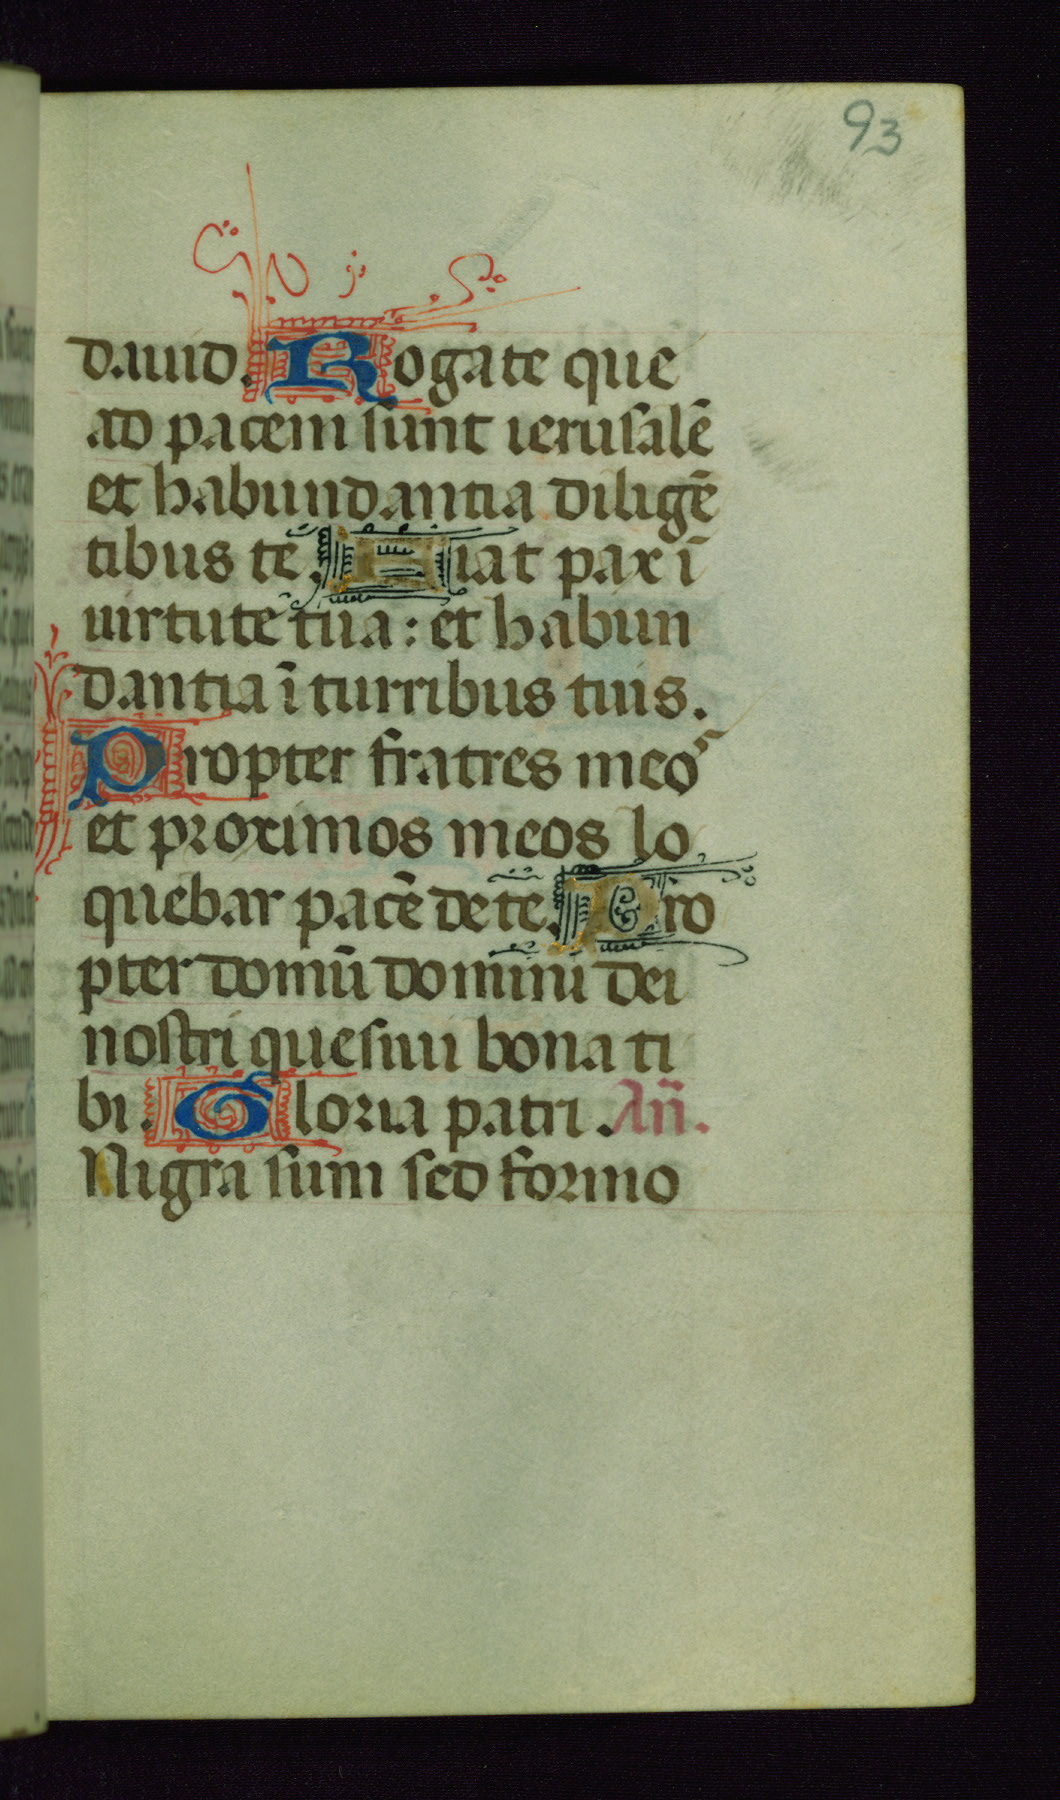 93
dauid. Rogate que
ad pacem sunt ierusalē
et habundantia diligē
tibus te. Fiat pax ī
uirtute tua: et habun
dantia ī turribus tuis.
Propter fratres meos
et proximos meos lo
quebar pacē de te. Pro
pter domū domini dei
nostri quesiui bona ti
bi. Gloria patri. Añ.
Nigra sum sed formo